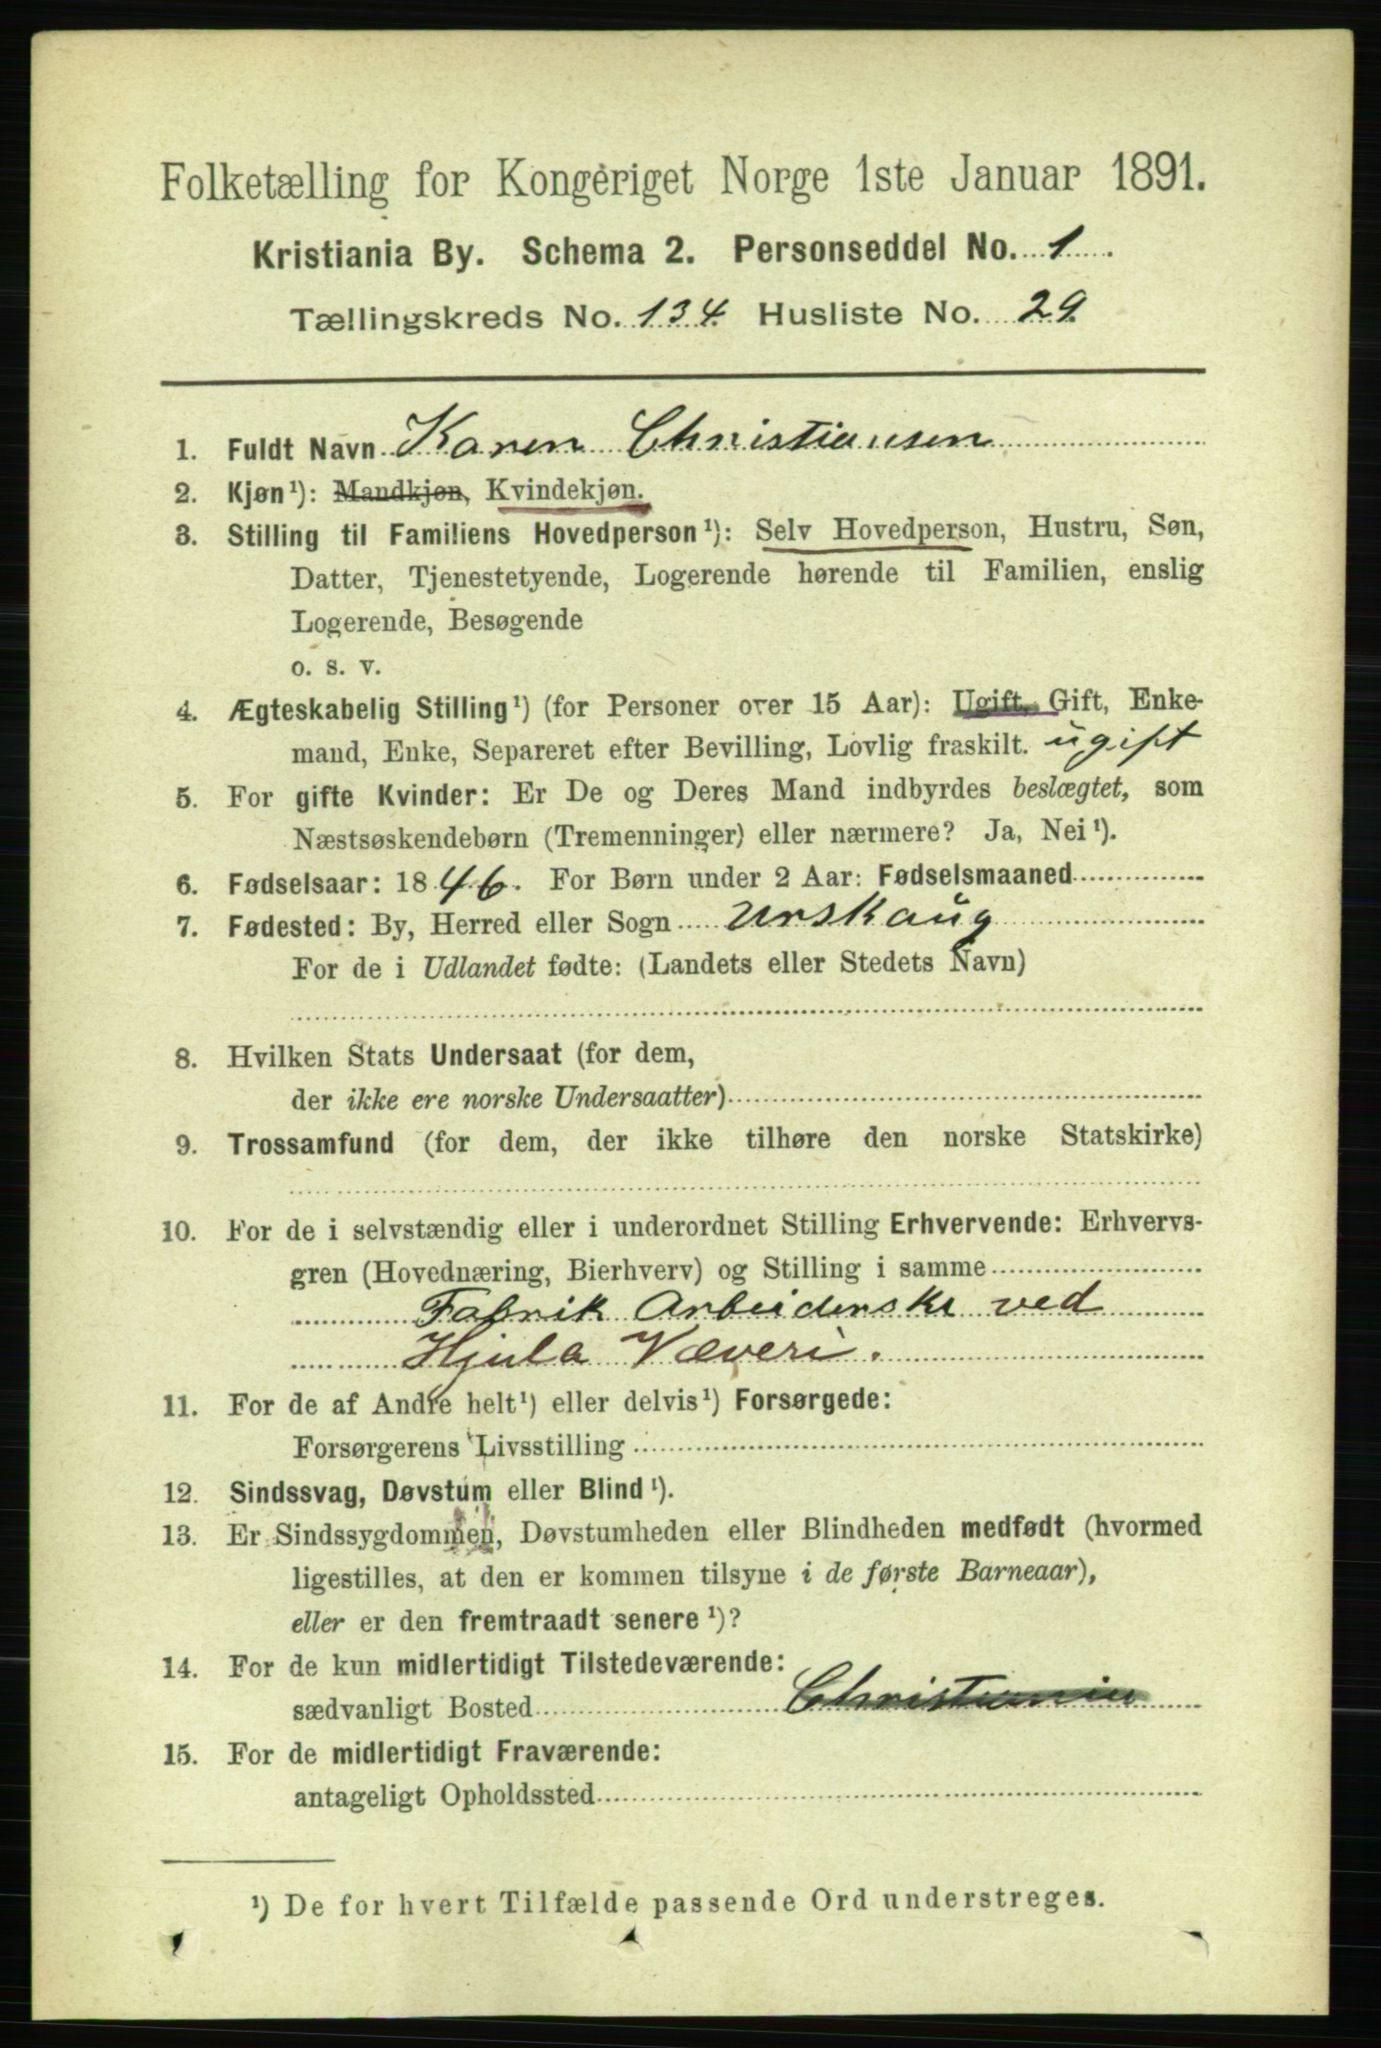 Folketælling for Kongeriget Norge 1ste Januar 1891.
Kristiania By. Schema 2. Personseddel No. 1.
Tællingskreds No. 134 Husliste No. 29.
1. Fuldt Navn Karen Christiansen
2. Kjøn¹): Mandkjøn, Kvindekjøn.
3. Stilling til Familiens Hovedperson¹): Selv Hovedperson, Hustru, Søn,
Datter, Tjenestetyende, Logerende hørende til Familien, enslig
Logerende, Besøgende
o. s. v.
4. Ægteskabelig Stilling¹) (for Personer over 15 Aar): Ugift, Gift, Enke-
mand, Enke, Separeret efter Bevilling, Lovlig fraskilt. ugift
5. For gifte Kvinder: Er De og Deres Mand indbyrdes beslægtet, som
Næstsøskendebørn (Tremenninger) eller nærmere? Ja, Nei¹).
6. Fødselsaar: 1846. For Børn under 2 Aar: Fødselsmaaned
7. Fødested: By, Herred eller Sogn Urskaug
For de i Udlandet fødte: (Landets eller Stedets Navn)
8. Hvilken Stats Undersaat (for dem,
der ikke ere norske Undersaatter)
9. Trossamfund (for dem, der ikke tilhøre den norske Statskirke)
10. For de i selvstændig eller i underordnet Stilling Erhvervende: Erhvervs-
gren (Hovednæring, Bierhverv) og Stilling i samme
Fabrik Arbeiderske ved
Hjula Væveri.
11. For de af Andre helt¹) eller delvis¹) Forsørgede:
Forsørgerens Livsstilling
12. Sindssvag, Døvstum eller Blind¹).
13. Er Sindssygdommen, Døvstumheden eller Blindheden medfødt (hvormed
ligestilles, at den er kommen tilsyne i de første Barneaar),
eller er den fremtraadt senere¹)?
14. For de kun midlertidigt Tilstedeværende:
sædvanligt Bosted Christiania
15. For de midlertidigt Fraværende:
antageligt Opholdssted
¹) De for hvert Tilfælde passende Ord understreges.